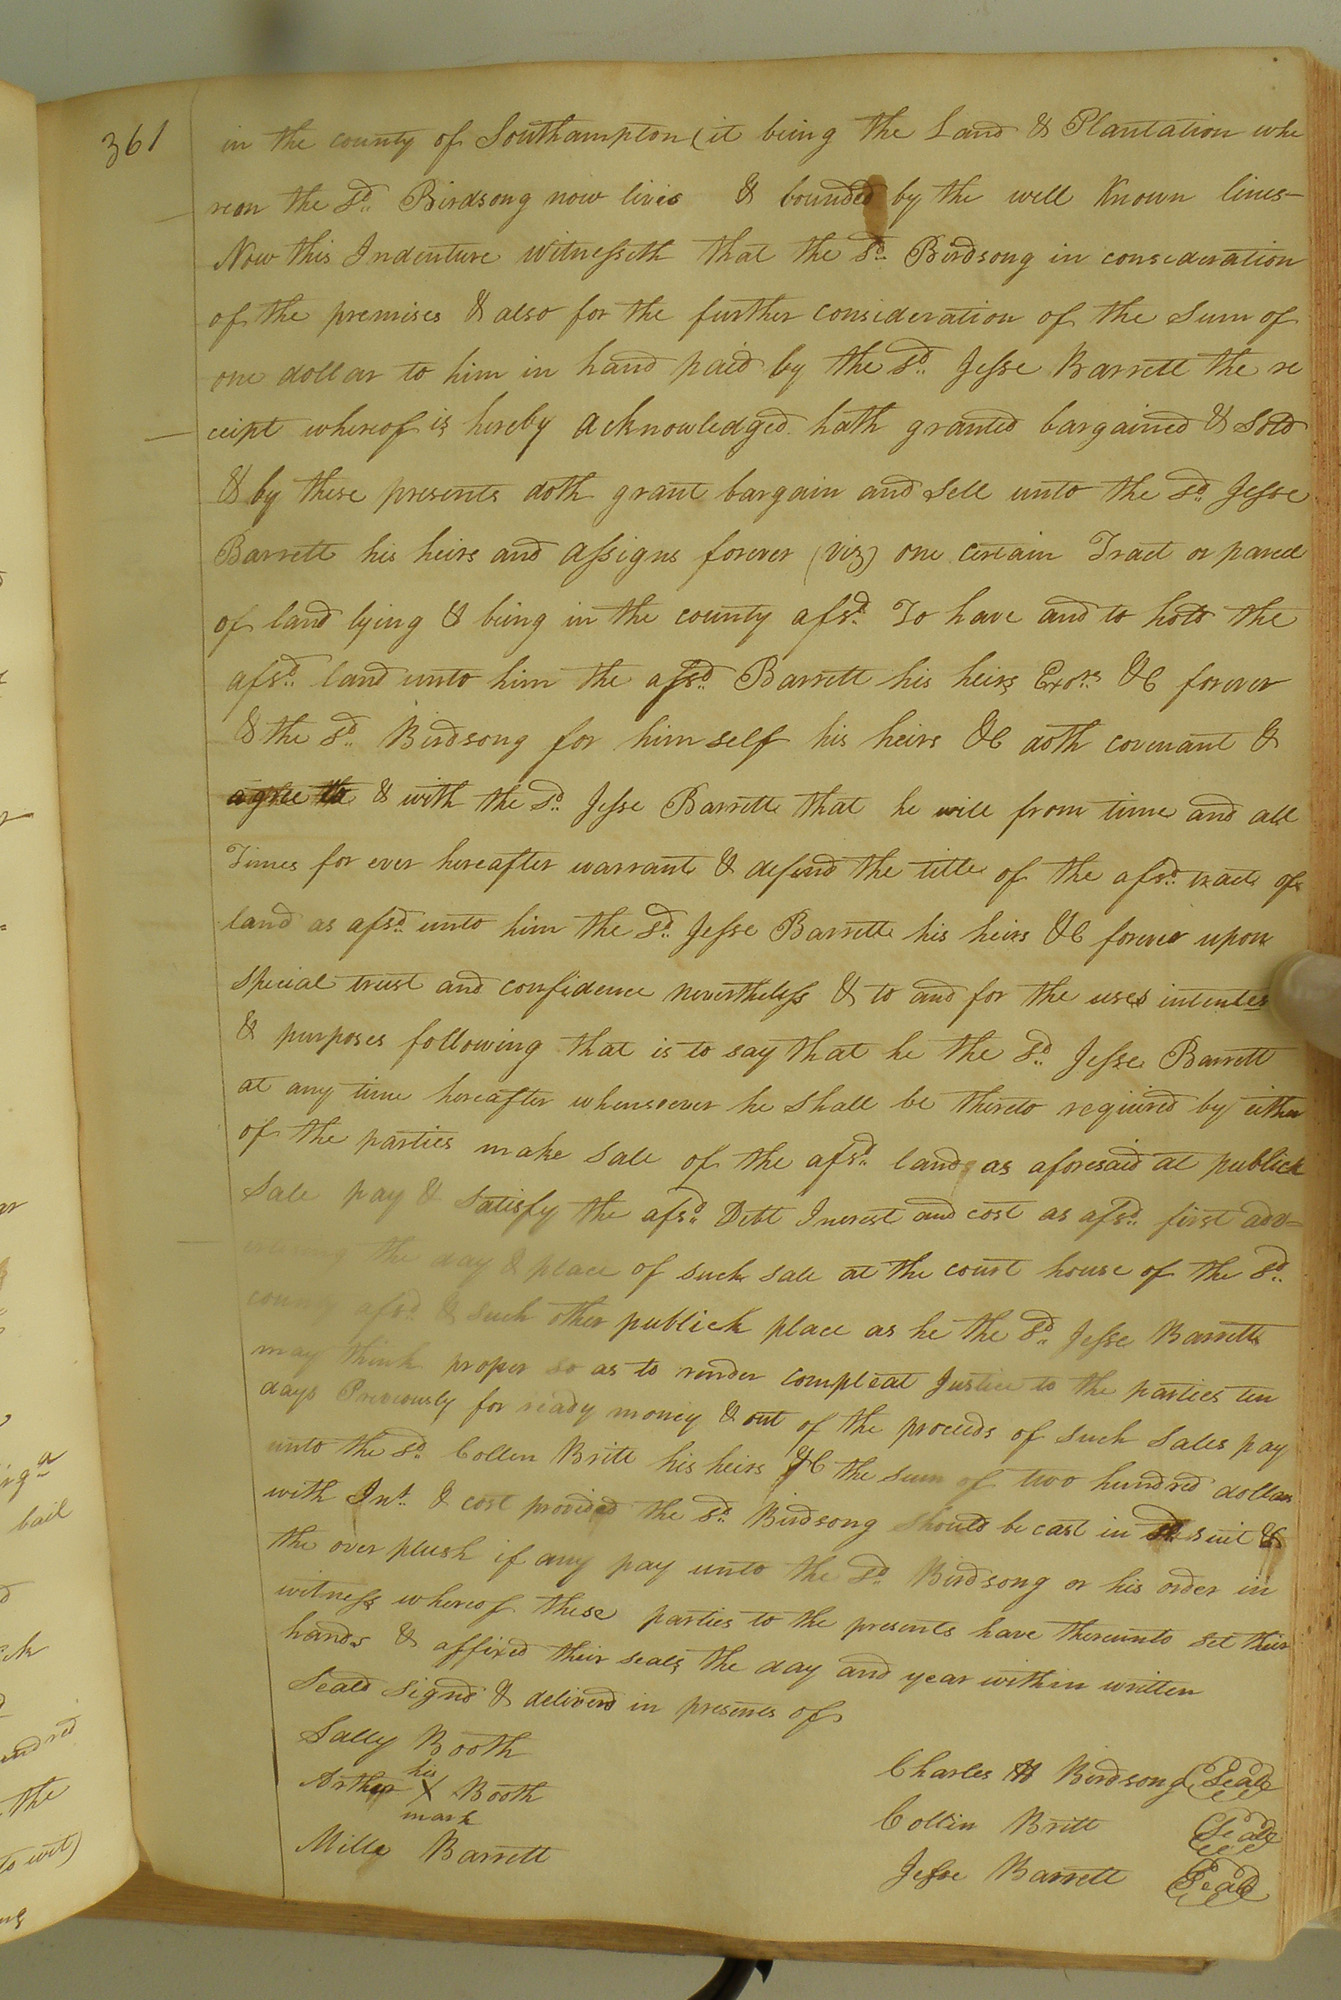 361
in the county of Southampton (it being the Land & Plantation whe
reon the Sd. Birdsong now lives & bounded by the well Known lines-
Now this Indenture Witnesseth that the Sd. Birdsong in consideration
of the premises & also for the further consideration of the Sum of
one dollar to him in hand paid by the Sd. Jesse Barrett the re
ceipt whereof is hereby acknowledged hath granted bargained & Sold
& by these presents doth grant bargain and Sell unto the Sd. Jesse
Barrett his heirs and assigns forever (viz) one certain Tract or parcel
of land lying & being in the county afsd. To have and to hold the
afsd. land unto him the afsd. Barrett his heirs Exors &C forever
& the Sd. Birdsong for him self his heirs &C doth covenant &
agree to & with the Sd. Jesse Barrett that he will from time and all
Times for ever hereafter warrant & defend the title of the afsd. tract of
land as afsd. unto him the Sd. Jesse Barrett his heirs &C forever upon
special trust and confidence nevertheless & to and for the uses intentes
& purposes following that is to say that he the Sd. Jesse Barrett
at any time hereafter whensoever he shall be thereto required by either
of the parties make Sale of the afsd. land as aforesaid at publick
Sale pay & Satisfy the afsd. Debt Inerest and cost as afsd. first adv=
ertising the day & place of such sale at the court house of the Sd.
county afsd. & such other publick place as he the Sd. Jesse Barrett
may think proper so as to render compleat Justice to the parties ten
days Previously for ready money & out of the proceeds of such Sales pay
unto the Sd. Collin Britt his heirs &C the sum of two hundred dollars
with Int. & cost provided the Sd. Birdsong should be cast in Sd. suit &
the over plush if any pay unto the Sd. Birdsong or his order in
witness whereof these parties to the presents have thereunto set their
hands & affixed their seals the day and year within written
Seald signd & deliverd in presenes of
Sally Booth
Arthur his X mark Booth
Mills Barrett
Charles H Birdsong (Seal)
Collin Britt (Seal)
Jesse Barrett (Seal)